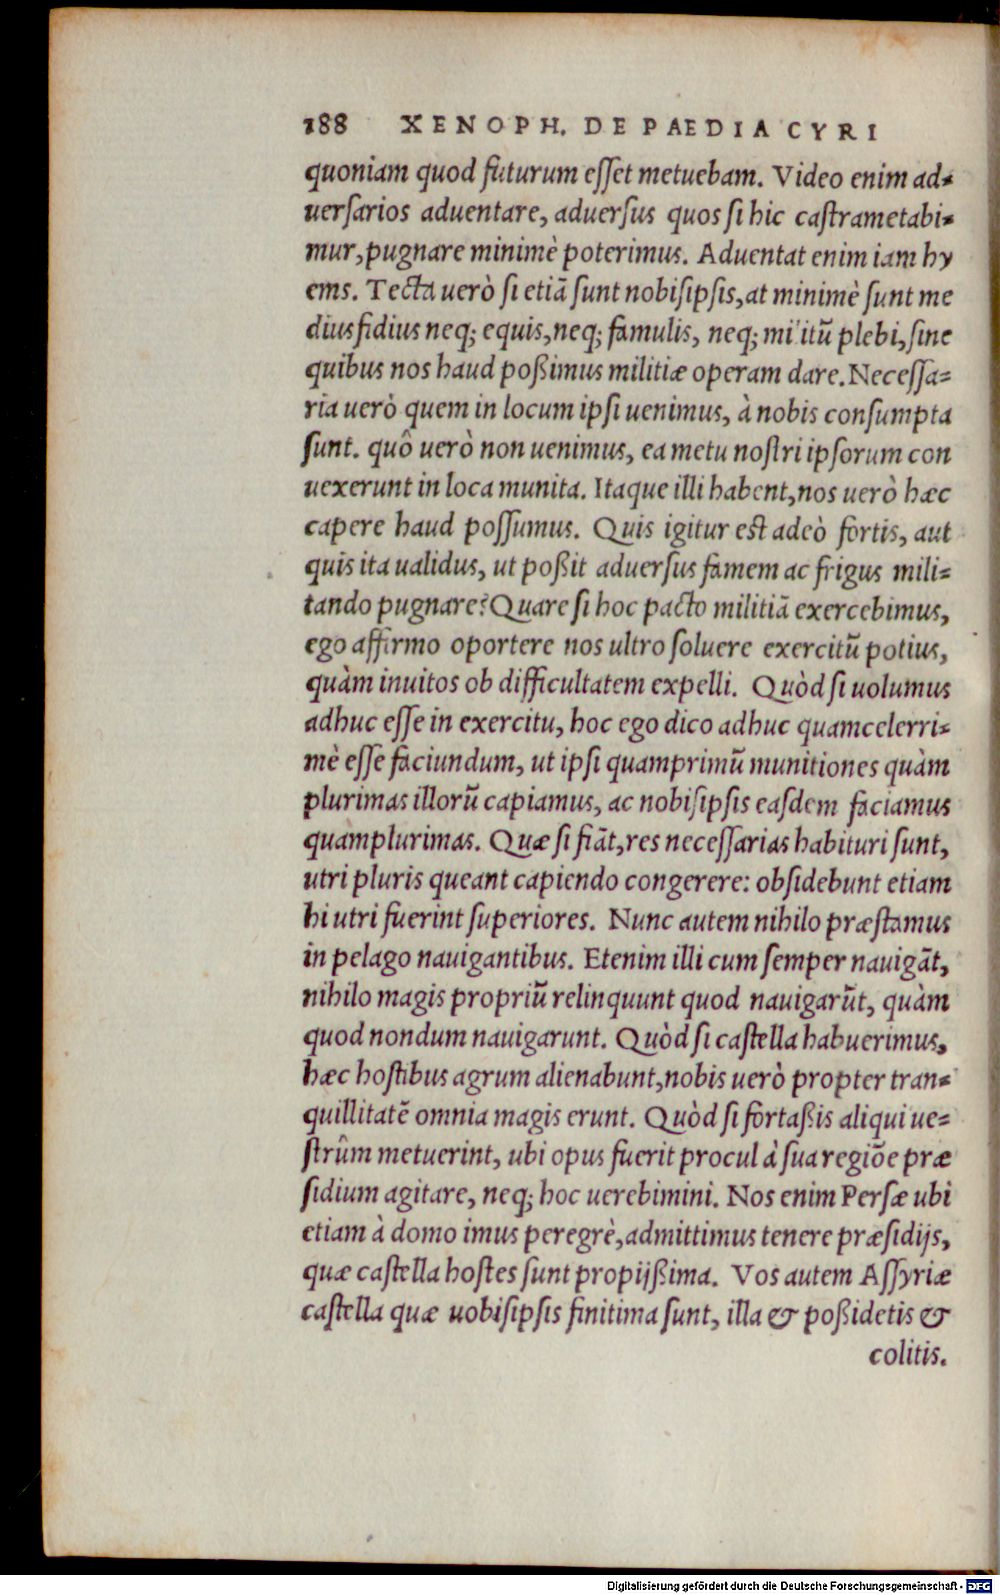 188 XENOPH. DE PAEDIA CYRI
quoniam quod futurum esset metuebam. Video enim ad-
uersarios aduentare, aduersus quos si hic castrametabi-
mur, pugnare minimè poterimus. Aduentat enim iam hy
ems. Tecta uerò si etiã sunt nobisipsis, at minimè sunt me
diusfidius neq; equis, neq; famulis, neq; militũ plebi, sine
quibus nos haud poßimus militiæ operam dare. Necessa-
ria uerò quem in locum ipsi uenimus, à nobis consumpta
sunt. quô uerò non uenimus, ea metu nostri ipsorum con
uexerunt in loca munita. Itaque illi habent, nos uerò hæc
capere haud possumus. Quis igitur est adeò fortis, aut
quis ita ualidus, ut poßit aduersus famem ac frigus mili-
tando pugnare? Quare si hoc pacto militiã exercebimus,
ego affirmo oportere nos ultro soluere exercitũ potius,
quàm inuitos ob difficultatem expelli. Quòd si uolumus
adhuc esse in exercitu, hoc ego dico adhuc quamcelerri-
mè esse faciundum, ut ipsi quamprimũ munitiones quàm
plurimas illorũ capiamus, ac nobisipsis easdem faciamus
quamplurimas. Quæ si fiãt, res necessarias habituri sunt,
utri pluris queant capiendo congerere: obsidebunt etiam
hi utri fuerint superiores. Nunc autem nihilo præstamus
in pelago nauigantibus. Etenim illi cum semper nauigãt,
nihilo magis propriũ relinquunt quod nauigarũt, quàm
quod nondum nauigarunt. Quòd si castella habuerimus,
hæc hostibus agrum alienabunt, nobis uerò propter tran-
quillitatẽ omnia magis erunt. Quòd si fortaßis aliqui ue-
strûm metuerint, ubi opus fuerit procul à sua regiõe præ
sidium agitare, neq; hoc uerebimini. Nos enim Persæ ubi
etiam à domo imus peregrè, admittimus tenere præsidijs,
quæ castella hostes sunt propijßima. Vos autem Assyriæ
castella quæ uobisipsis finitima sunt, illa & poßidetis &
colitis.
Digitalisierung gefördert durch die Deutsche Forschungsgemeinschaft - DFG